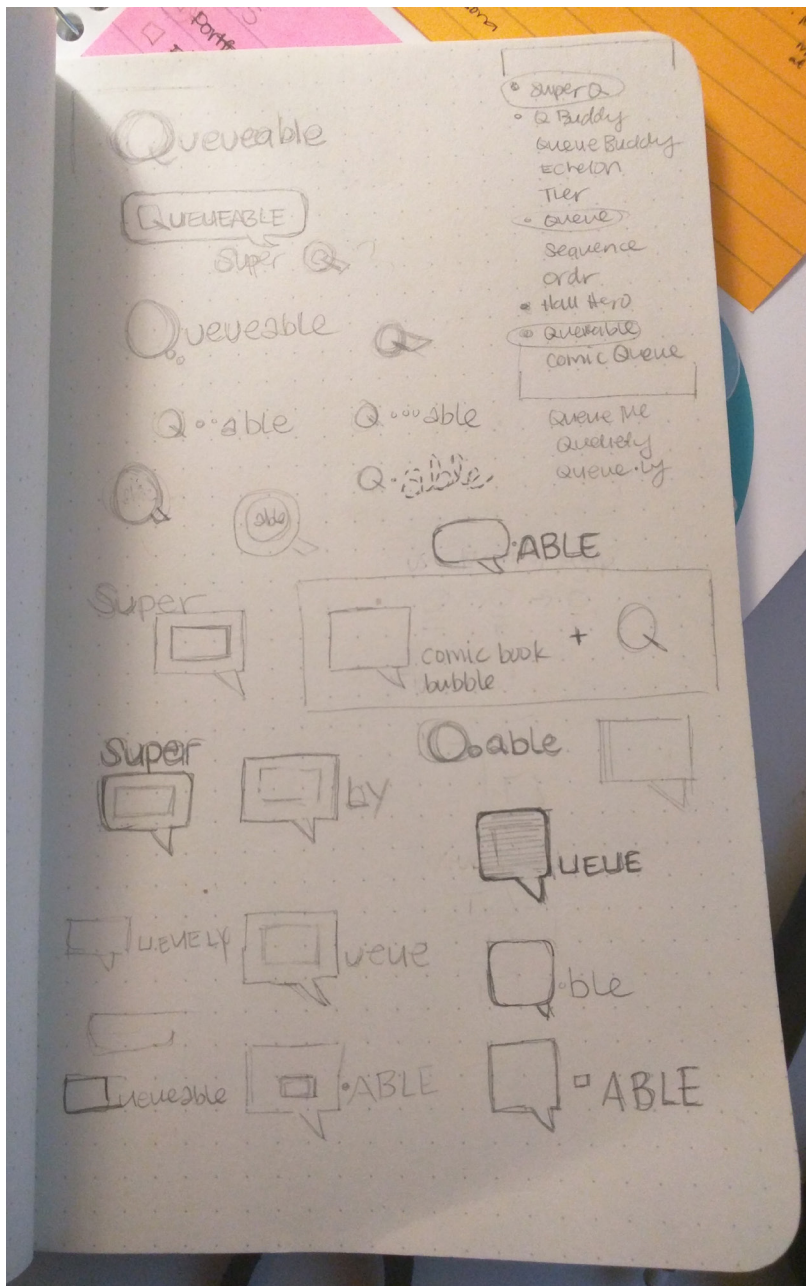 Portf
Queueable
QUEUEABLE
Super Q
Queueable
Q
Q able
Q able
Q able
able
ABLE
Super
comic book
bubble
+
Q
Super
by
able
UEUE
UEUELY
ueue
ble
ueueable
ABLE
ABLE
Super Q
Q Buddy
Queue Buddy
Echelon
Tier
Queue
Sequence
Ordr
Hall Hero
Queueable
Comic Queue
Queue Me
Queue.ly